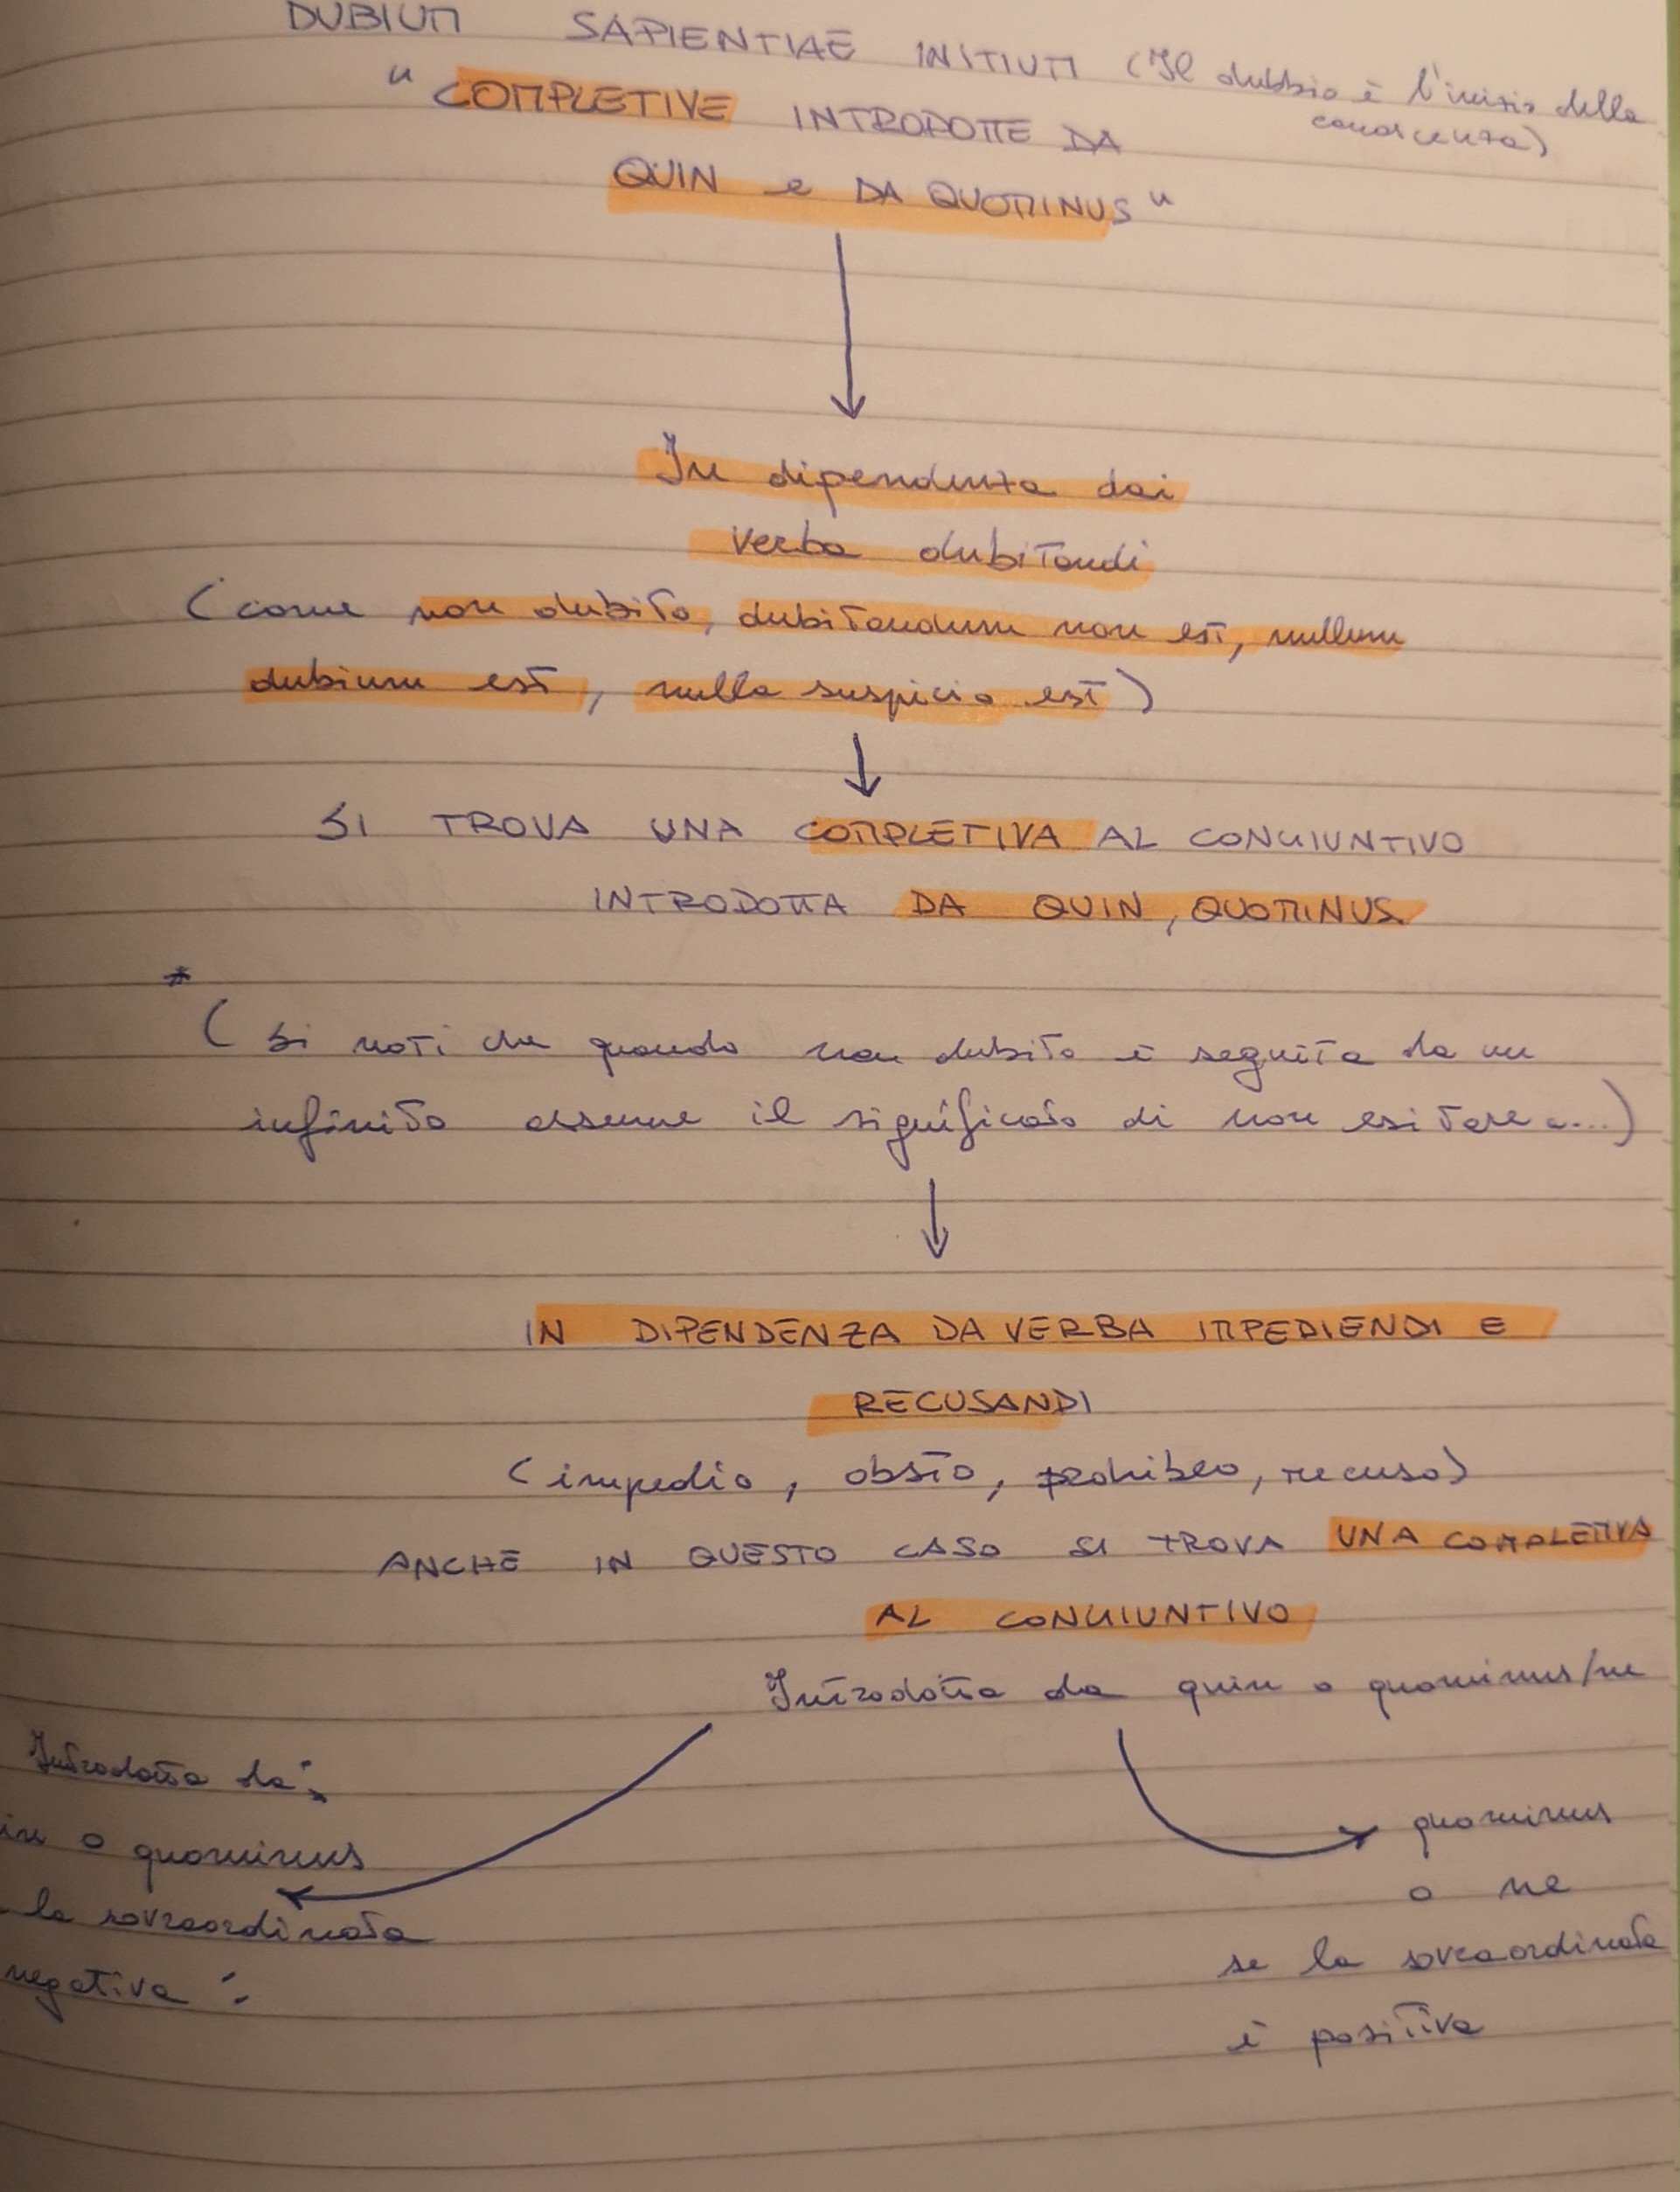 DUBIUM SAPIENTIAE INITIUM (Il dubbio è l'inizio della
conoscenza)
" COMPLETIVE INTRODOTTE DA
QUIN e DA QUOMINUS "
In dipendenza dai
verba dubitandi
(come non dubito, dubitandum non est, nullum
dubium est, nulla suspicio est)
SI TROVA UNA COMPLETIVA AL CONGIUNTIVO
INTRODOTTA DA QUIN, QUOMINUS
*
( Si noti che quando non dubito è seguita da un
infinito assume il significato di non esitare a...)
IN DIPENDENZA DA VERBA IMPEDIENDI E
RECUSANDI
(impedio, obsto, prohibeo, recuso)
ANCHE IN QUESTO CASO SI TROVA UNA COMPLETIVA
AL CONGIUNTIVO
Introdotta da quin o quominus/ne
Introdotta da:
in o quominus
la sovraordinata
negativa :
quominus
o ne
se la sovraordinata
è positiva